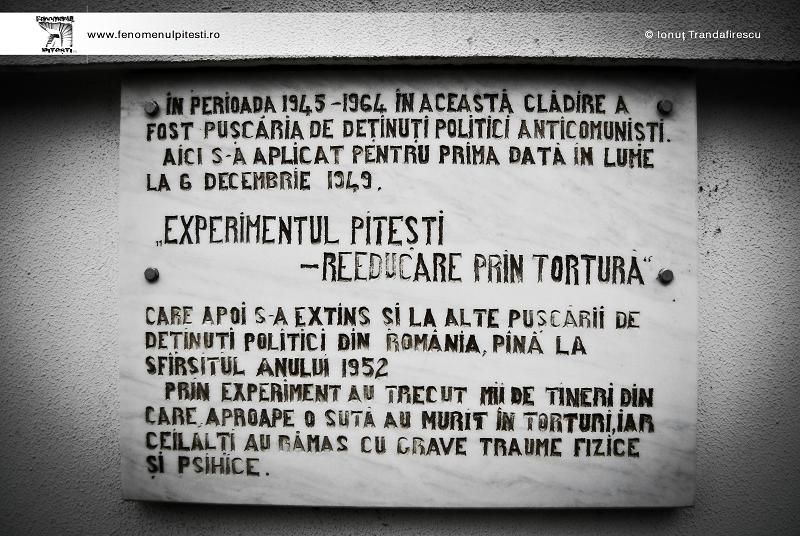 Fenomenul
PITEȘTI
www.fenomenulpitesti.ro
© Ionuț Trandafirescu
ÎN PERIOADA 1945-1964 ÎN ACEASTĂ CLĂDIRE A
FOST PUȘCĂRIA DE DEȚINUȚI POLITICI ANTICOMUNIȘTI.
AICI S-A APLICAT PENTRU PRIMA DATĂ ÎN LUME
LA 6 DECEMBRIE 1949.
„EXPERIMENTUL PITEȘTI
–REEDUCARE PRIN TORTURĂ“
CARE APOI S-A EXTINS ȘI LA ALTE PUȘCĂRII DE
DEȚINUȚI POLITICI DIN ROMÂNIA, PÎNĂ LA
SFÎRȘITUL ANULUI 1952
PRIN EXPERIMENT AU TRECUT MII DE TINERI DIN
CARE, APROAPE O SUTĂ AU MURIT ÎN TORTURI, IAR
CEILALȚI AU RĂMAS CU GRAVE TRAUME FIZICE
ȘI PSIHICE.